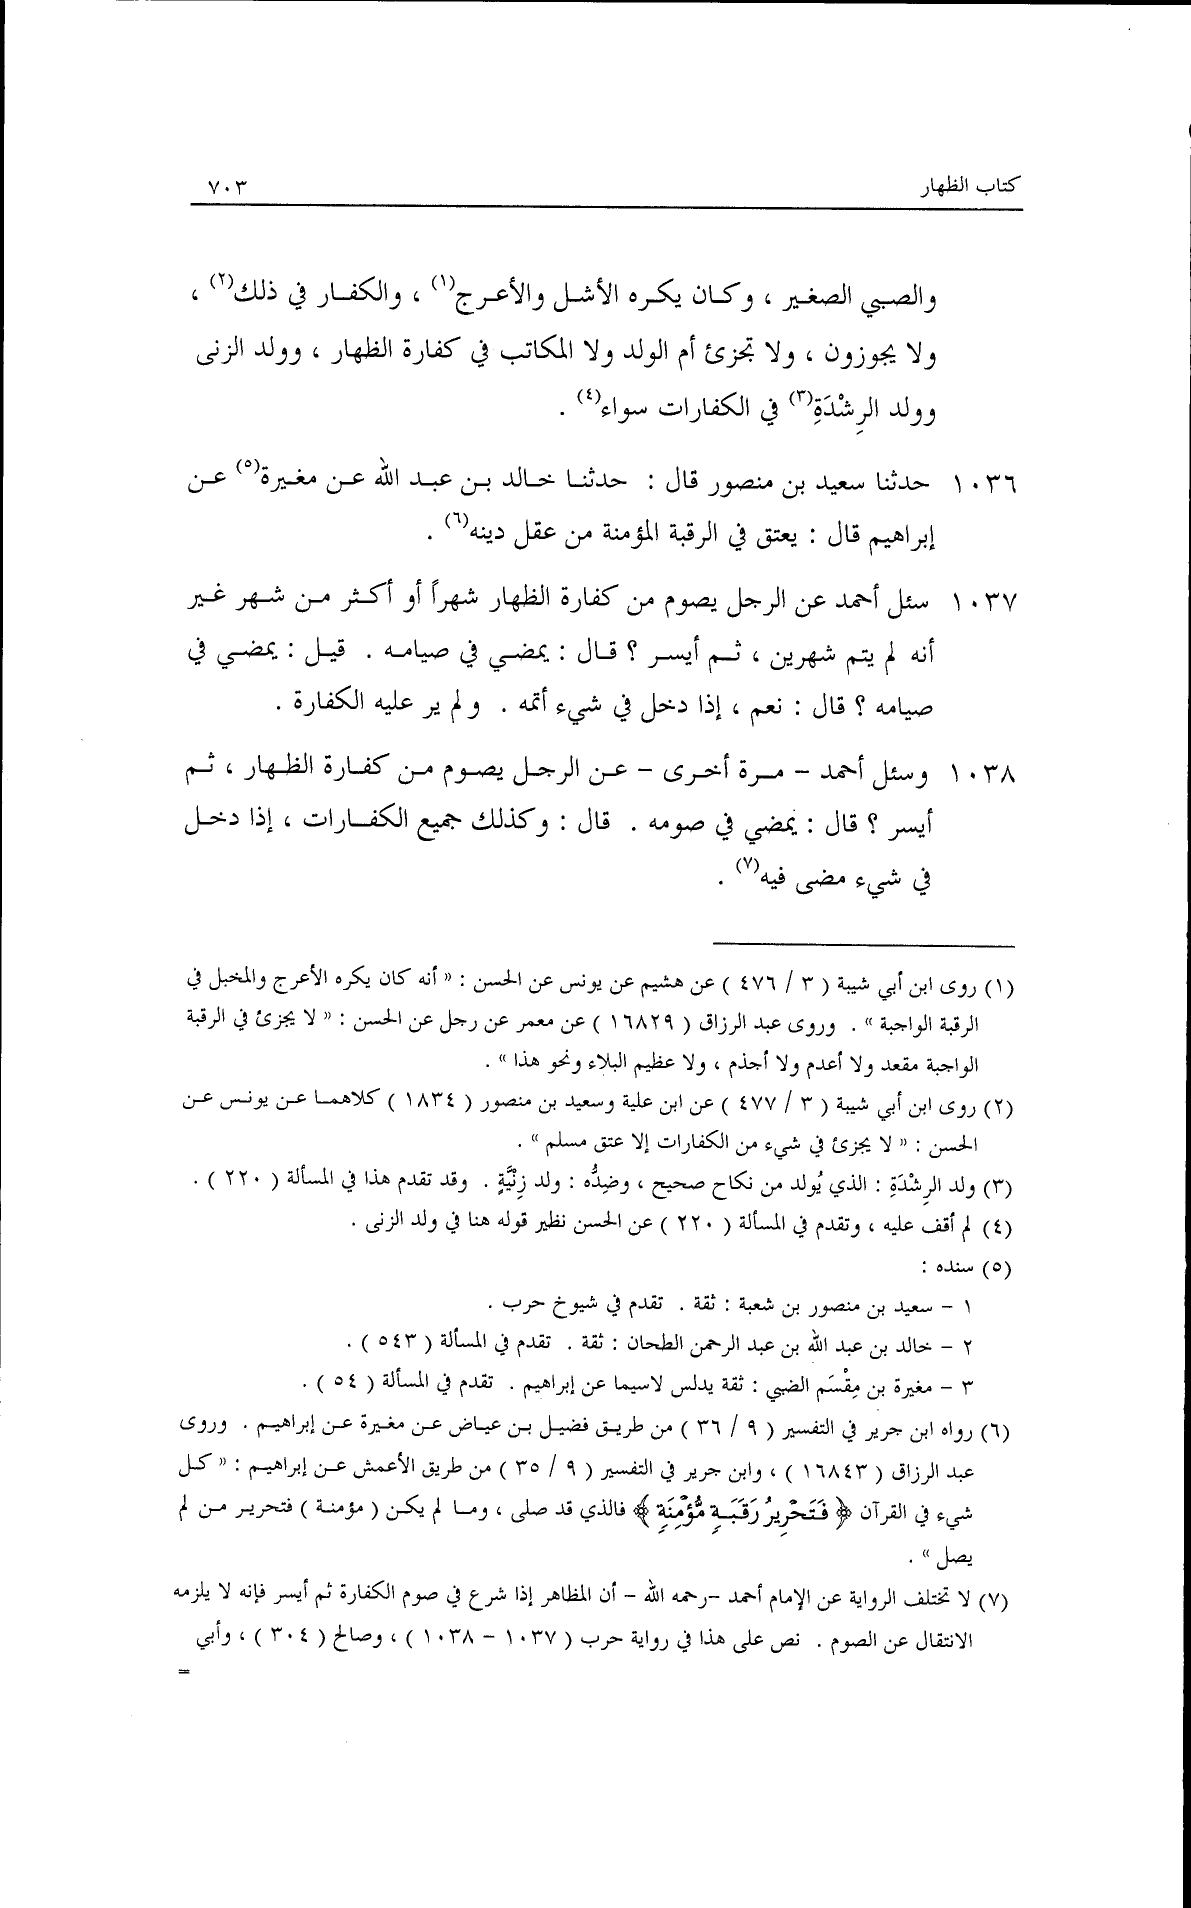 كتاب الظهار ٧٠٣
والصبي الصغير ، وكان يكره الأشل والأعرج(١) ، والكفار في ذلك(٢) ،
ولا يجوزون ، ولا تجزئ أم الولد ولا المكاتب في كفارة الظهار ، وولد الزنى
وولد الرِشْدَةِ(٣) في الكفارات سواء(٤) .
١٠٣٦ حدثنا سعيد بن منصور قال : حدثنا خالد بن عبد الله عن مغيرة(٥) عن
إبراهيم قال : يعتق في الرقبة المؤمنة من عقل دينه(٦) .
١٠٣٧ سئل أحمد عن الرجل يصوم من كفارة الظهار شهراً أو أكثر من شهر غير
أنه لم يتم شهرين ، ثم أيسر ؟ قال : يمضي في صيامه . قيل : يمضي في
صيامه ؟ قال : نعم ، إذا دخل في شيء أتمه . ولم ير عليه الكفارة .
١٠٣٨ وسئل أحمد - مرة أخرى - عن الرجل يصوم من كفارة الظهار ، ثم
أيسر ؟ قال : يمضي في صومه . قال : وكذلك جميع الكفارات ، إذا دخل
في شيء مضى فيه(٧) .
(١) روى ابن أبي شيبة ( ٣ / ٤٧٦ ) عن هشيم عن يونس عن الحسن : « أنه كان يكره الأعرج والمخبل في
الرقبة الواجبة » . وروى عبد الرزاق ( ١٦٨٢٩ ) عن معمر عن رجل عن الحسن : « لا يجزئ في الرقبة
الواجبة مقعد ولا أعدم ولا أجذم ، ولا عظيم البلاء ونحو هذا » .
(٢) روى ابن أبي شيبة ( ٣ / ٤٧٧ ) عن ابن علية وسعيد بن منصور ( ١٨٣٤ ) كلاهما عن يونس عن
الحسن : « لا يجزئ في شيء من الكفارات إلا عتق مسلم » .
(٣) ولد الرِشْدَةِ : الذي يُولد من نكاح صحيح ، وضِدُّه : ولد زِنْيَّةٍ . وقد تقدم هذا في المسألة ( ٢٢٠ ) .
(٤) لم أقف عليه ، وتقدم في المسألة ( ٢٢٠ ) عن الحسن نظير قوله هنا في ولد الزنى .
(٥) سنده :
١ - سعيد بن منصور بن شعبة : ثقة . تقدم في شيوخ حرب .
٢ - خالد بن عبد الله بن عبد الرحمن الطحان : ثقة . تقدم في المسألة ( ٥٤٣ ) .
٣ - مغيرة بن مِقْسَم الضبي : ثقة يدلس لاسيما عن إبراهيم . تقدم في المسألة ( ٥٤ ) .
(٦) رواه ابن جرير في التفسير ( ٩ / ٣٦ ) من طريق فضيل بن عياض عن مغيرة عن إبراهيم . وروى
عبد الرزاق ( ١٦٨٤٣ ) ، وابن جرير في التفسير ( ٩ / ٣٥ ) من طريق الأعمش عن إبراهيم : « كل
شيء في القرآن ﴿ فَتَحْرِيرُ رَقَبَةٍ مُّؤْمِنَةٍ ﴾ فالذي قد صلى ، وما لم يكن ( مؤمنة ) فتحرير من لم
يصل » .
(٧) لا تختلف الرواية عن الإمام أحمد -رحمه الله - أن المظاهر إذا شرع في صوم الكفارة ثم أيسر فإنه لا يلزمه
الانتقال عن الصوم . نص على هذا في رواية حرب ( ١٠٣٧ - ١٠٣٨ ) ، وصالح ( ٣٠٤ ) ، وأبي
=